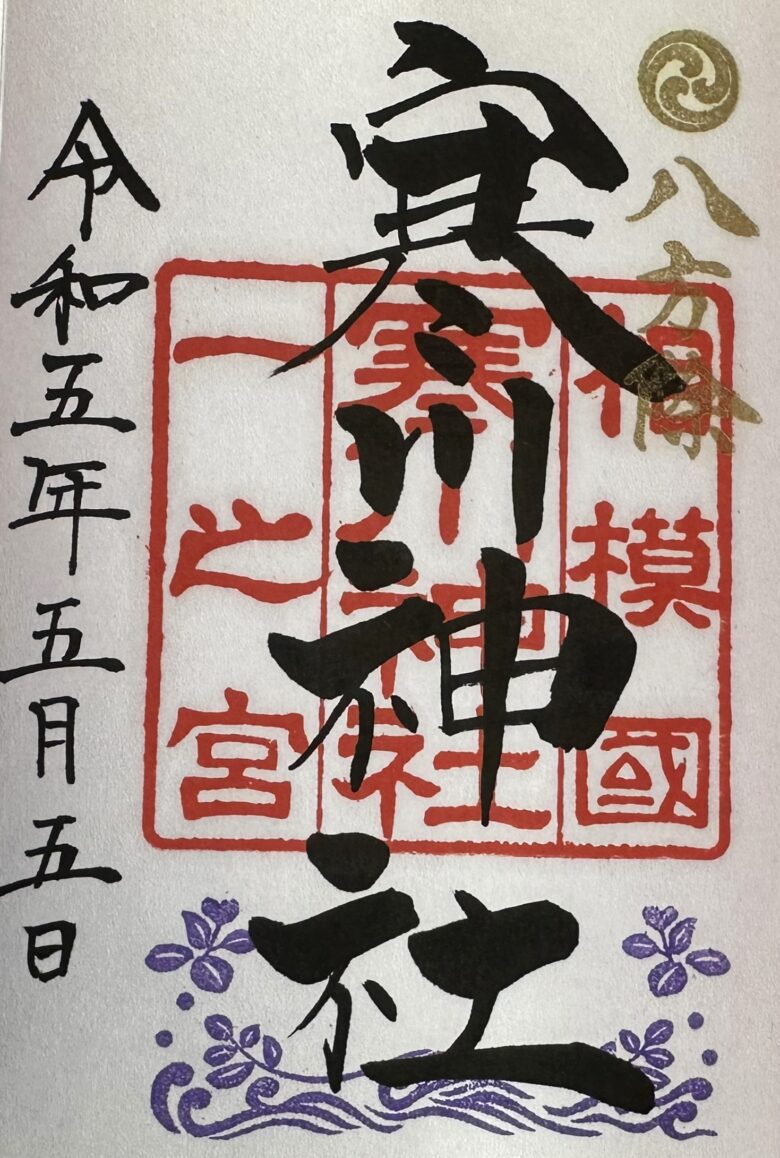 八方除
相模國
寒川神社
一之宮
寒川神社
令和五年五月五日